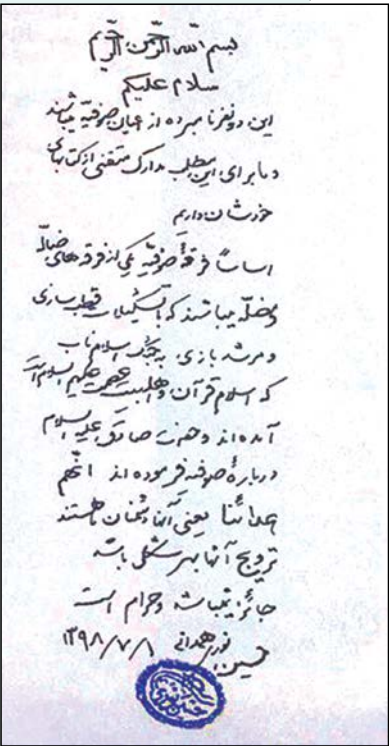 بسم الله الرحمن الرحیم
سلام علیکم
این دو نفر نامبرده از اعیان صوفیه میباشند
و ما برای این مطلب مدارک متقنی از کتابهای
خودشان داریم
اساساً فرقهٔ صوفیّه یکی از فرقه های ضالّه
و مضلّه میباشند که با تشکیلات قطب سازی
و مرشد بازی، به جنگ اسلام ناب
که اسلام قرآن و اهلبیت عصمت علیهم السلام است
آمده اند و حضرت صادق علیه السلام
دربارهٔ صوفیه فرموده اند انّهم
اعدائنا یعنی آنها دشمنان ما هستند
ترویج آنها بهر شکلی باشد
جائز نمیباشد و حرام است
حسین نوری همدانی ۱۳۹۸/۷/۸